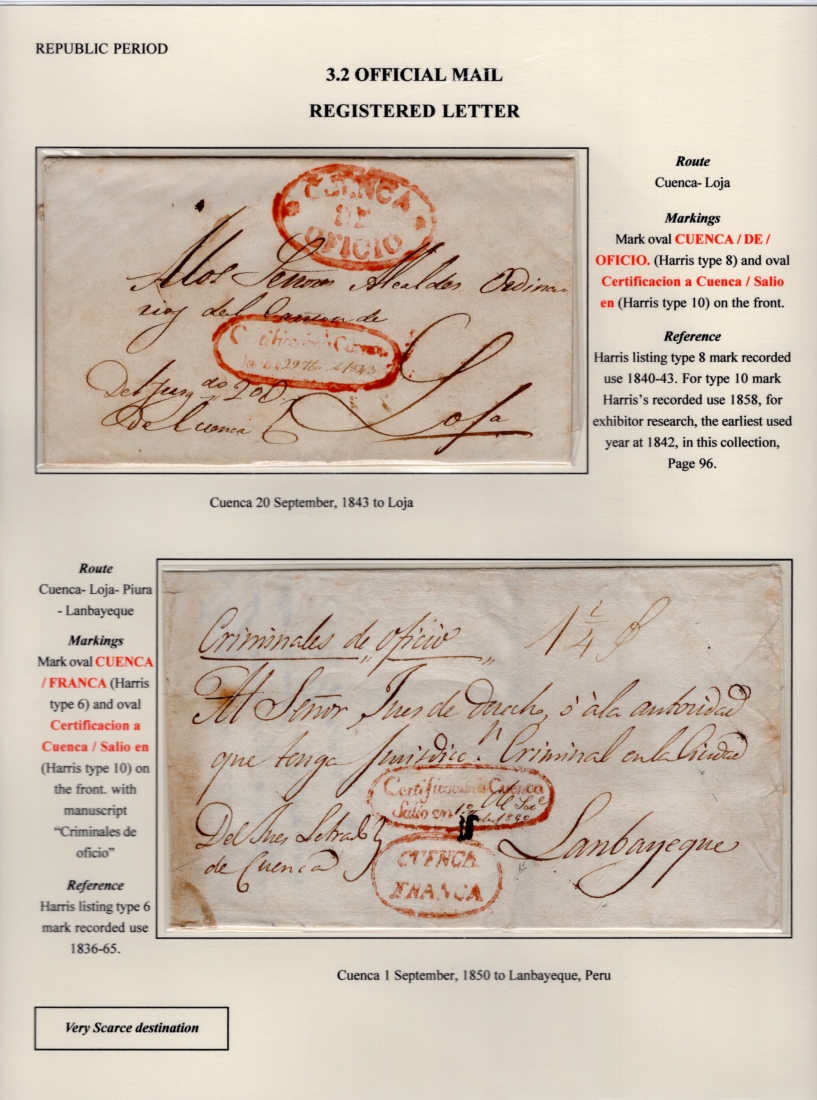 REPUBLIC PERIOD
3.2 OFFICIAL MAIL
REGISTERED LETTER
CUENCA
DE
OFICIO
A los Señores Alcaldes Ordina
rios del Canton de
Loja
Certificacion a Cuenca
29 1843
Del Juzgdo 2º D.
de Cuenca
Route
Cuenca- Loja
Markings
Mark oval CUENCA / DE /
OFICIO. (Harris type 8) and oval
Certificacion a Cuenca / Salio
en (Harris type 10) on the front.
Reference
Harris listing type 8 mark recorded
use 1840-43. For type 10 mark
Harris's recorded use 1858, for
exhibitor research, the earliest used
year at 1842, in this collection,
Page 96.
Cuenca 20 September, 1843 to Loja
Route
Cuenca- Loja- Piura
- Lanbayeque
Markings
Mark oval CUENCA
/ FRANCA (Harris
type 6) and oval
Certificacion a
Cuenca / Salio en
(Harris type 10) on
the front. with
manuscript
“Criminales de
oficio”
Reference
Harris listing type 6
mark recorded use
1836-65.
Criminales de oficio
1 1/4
Al Señor Jues de Derecho, ó à la autoridad
que tenga Jurisdicn. Criminal en la Ciudad
Certificacion a Cuenca
Salio en 1º
Del Jues Letrado
de Cuenca
Lanbayeque
CUENCA
FRANCA
Cuenca 1 September, 1850 to Lanbayeque, Peru
Very Scarce destination